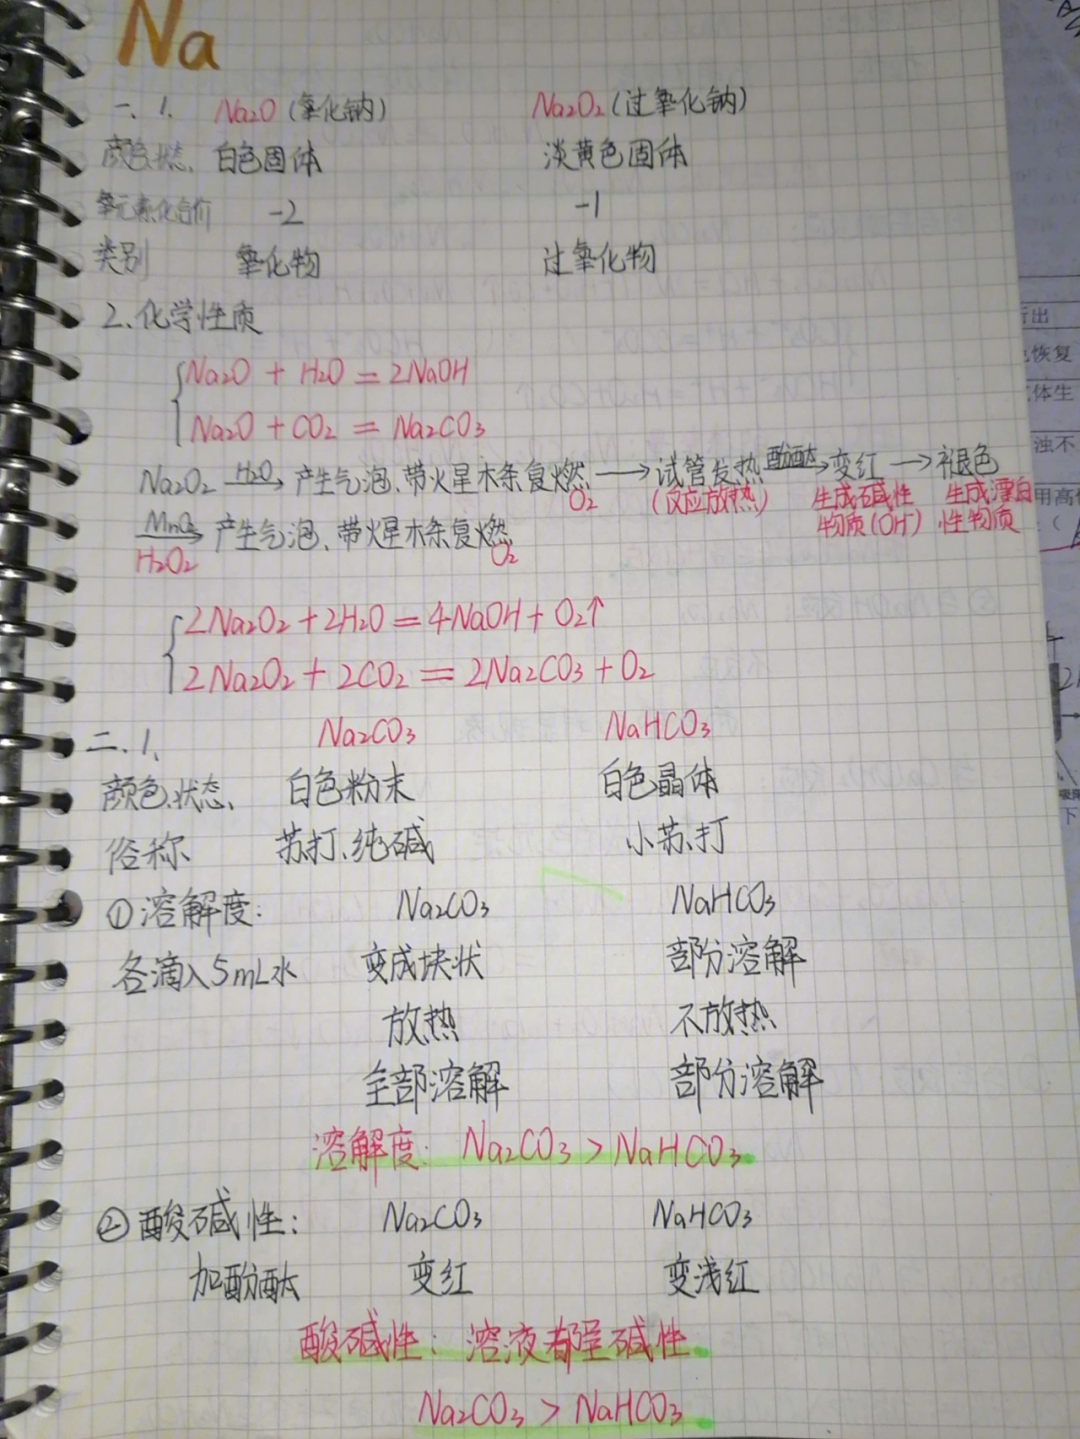 Na
一、1. Na₂O (氧化钠) Na₂O₂ (过氧化钠)
颜色状态、白色固体 淡黄色固体
氧元素化合价 -2 -1
类别 氧化物 过氧化物
2、化学性质
Na₂O + H₂O = 2NaOH
Na₂O + CO₂ = Na₂CO₃
Na₂O₂ H₂O→ 产生气泡、带火星木条复燃 → 试管发热 酚酞→ 变红 → 褪色
O₂ (反应放热) 生成碱性 生成漂白
物质(OH⁻) 性物质
MnO₂ 产生气泡、带火星木条复燃
H₂O₂ O₂
2Na₂O₂ + 2H₂O = 4NaOH + O₂↑
2Na₂O₂ + 2CO₂ = 2Na₂CO₃ + O₂
二、1、 Na₂CO₃ NaHCO₃
颜色、状态、 白色粉末 白色晶体
俗称 苏打、纯碱 小苏打
①溶解度: Na₂CO₃ NaHCO₃
各滴入5mL水 变成块状 部分溶解
放热 不放热
全部溶解 部分溶解
溶解度: Na₂CO₃ > NaHCO₃
②酸碱性: Na₂CO₃ NaHCO₃
加酚酞 变红 变浅红
酸碱性: 溶液都呈碱性
Na₂CO₃ > NaHCO₃